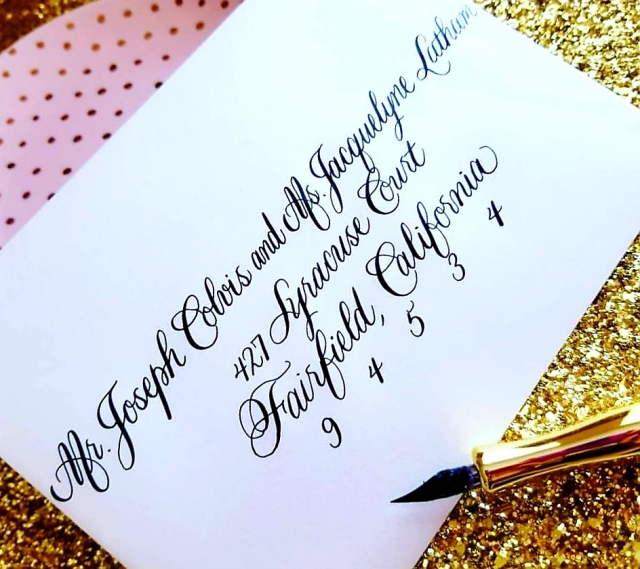 Mr. Joseph Colvis and Ms. Jacquelyne Lathum
427 Syracuse Court
Fairfield, California
9 4 5 3 4